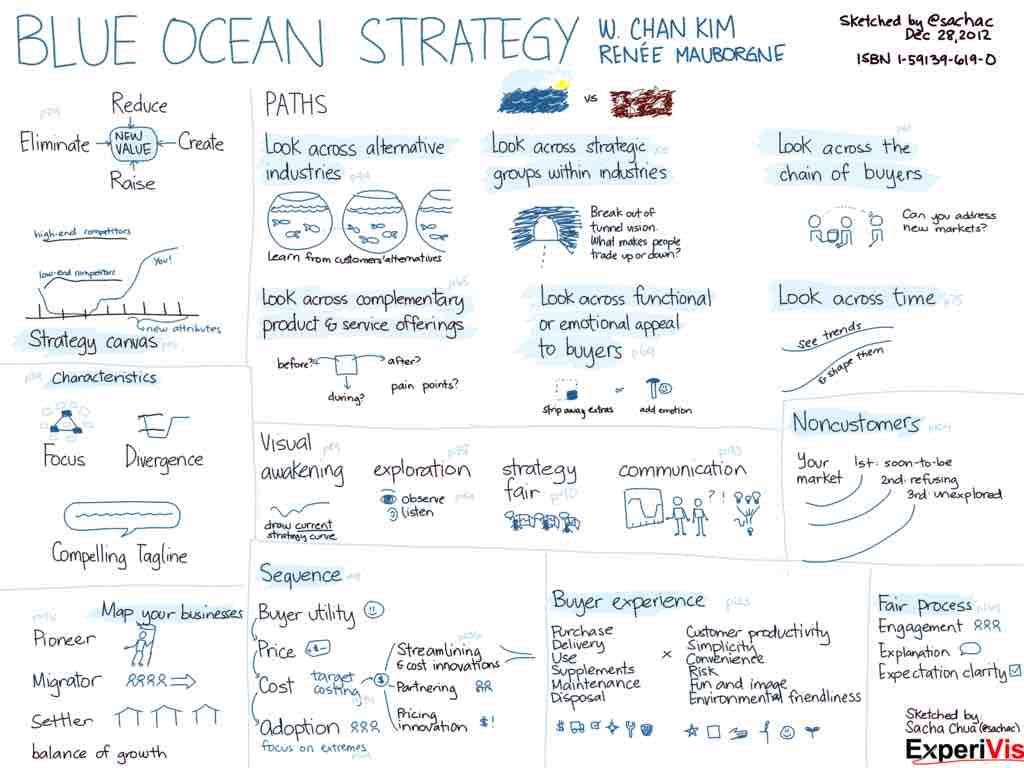 BLUE OCEAN STRATEGY
W. CHAN KIM
RENÉE MAUBORGNE
Sketched by @sachac
Dec 28, 2012
ISBN 1-59139-619-0
Reduce
Eliminate
NEW
VALUE
Create
Raise
high-end competitors
You!
low-end competitors
new attributes
Strategy canvas
PATHS
vs
Look across alternative
industries
Learn from customers' alternatives
Look across strategic
groups within industries
Break out of
tunnel vision.
What makes people
trade up or down?
Look across the
chain of buyers
Can you address
new markets?
Look across complementary
product & service offerings p65
before?
after?
during?
pain points?
Look across functional
or emotional appeal
to buyers p69
strip away extras
or
add emotion
Look across time p75
see trends
& shape them
Characteristics
Focus
Divergence
Compelling Tagline
Visual
awakening
draw current
strategy curve
exploration
observe
listen
strategy
fair p90
communication p93
?
!
Noncustomers p104
Your
market
1st: soon-to-be
2nd: refusing
3rd: unexplored
Map your businesses
Pioneer
Migrator
Settler
balance of growth
Sequence
Buyer utility
Price
Cost
target
costing
$
Adoption
focus on extremes
Streamlining
& cost innovations
Partnering
Pricing
innovation
$!
Buyer experience p123
Purchase
Delivery
Use
Supplements
Maintenance
Disposal
x
Customer productivity
Simplicity
Convenience
Risk
Fun and image
Environmental friendliness
$
Fair process
Engagement
Explanation
Expectation clarity
Sketched by
Sacha Chua (@sachac)
ExperiVis